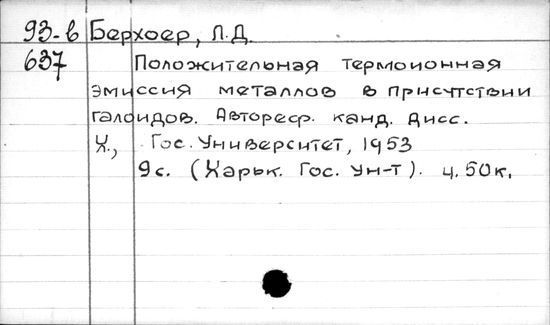 93-в Берхоер, Л.Д.
637 Положительная термоионная
эмиссия металлов в присутствии
галоидов. Автореф. канд. дисс.
Х., Гос. Университет, 1953
9с. (Харьк. Гос. ун-т). ц. 50к.